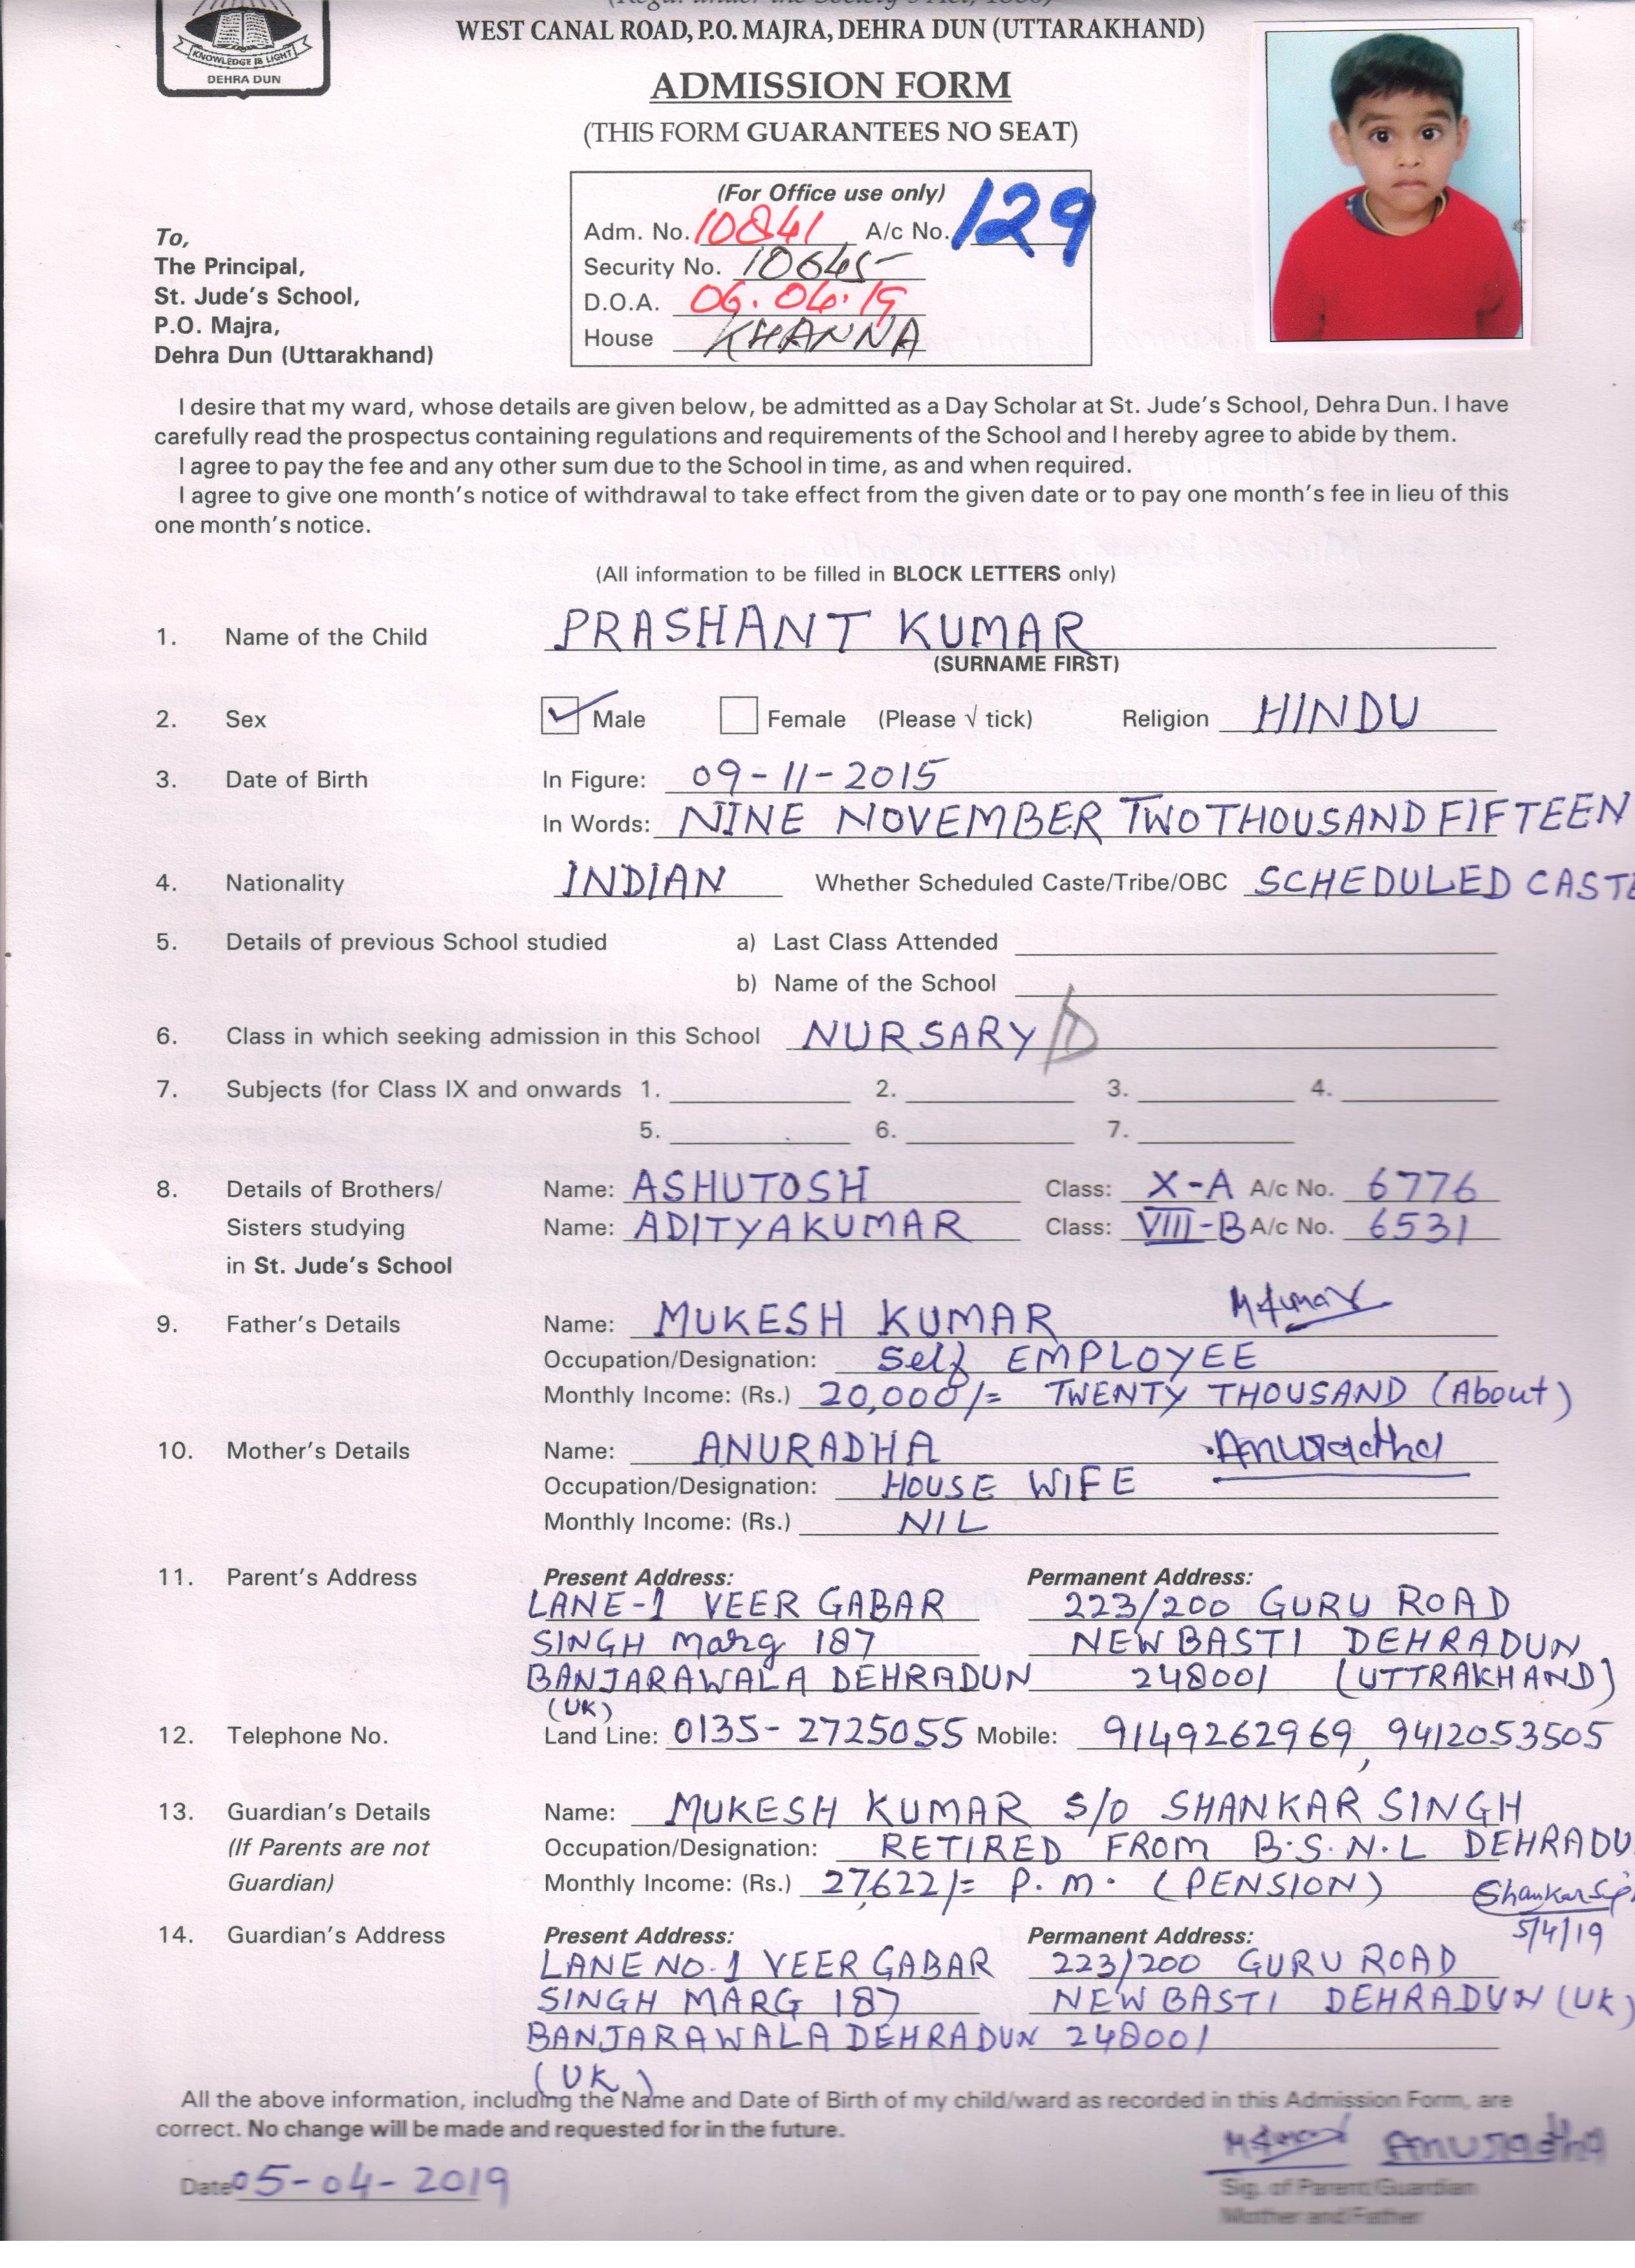 WEST CANAL ROAD, P.O. MAJRA, DEHRA DUN (UTTARAKHAND)
KNOWLEDGE IS LIGHT
DEHRA DUN
ADMISSION FORM
(THIS FORM GUARANTEES NO SEAT)
(For Office use only)
Adm. No. 10841 A/c No. 129
Security No. 10645
D.O.A. 06.04.19
House KHANNA
To,
The Principal,
St. Jude's School,
P.O. Majra,
Dehra Dun (Uttarakhand)
I desire that my ward, whose details are given below, be admitted as a Day Scholar at St. Jude's School, Dehra Dun. I have
carefully read the prospectus containing regulations and requirements of the School and I hereby agree to abide by them.
I agree to pay the fee and any other sum due to the School in time, as and when required.
I agree to give one month's notice of withdrawal to take effect from the given date or to pay one month's fee in lieu of this
one month's notice.
(All information to be filled in BLOCK LETTERS only)
1. Name of the Child PRASHANT KUMAR
(SURNAME FIRST)
2. Sex Male Female (Please √ tick) Religion HINDU
3. Date of Birth In Figure: 09-11-2015
In Words: NINE NOVEMBER TWO THOUSAND FIFTEEN
4. Nationality INDIAN Whether Scheduled Caste/Tribe/OBC SCHEDULED CASTE
5. Details of previous School studied a) Last Class Attended
b) Name of the School
6. Class in which seeking admission in this School NURSARY /D
7. Subjects (for Class IX and onwards 1. 2. 3. 4.
5. 6. 7.
8. Details of Brothers/ Name: ASHUTOSH Class: X-A A/c No. 6776
Sisters studying Name: ADITYA KUMAR Class: VIII-B A/c No. 6531
in St. Jude's School
9. Father's Details Name: MUKESH KUMAR M Kumar
Occupation/Designation: Self EMPLOYEE
Monthly Income: (Rs.) 20,000/= TWENTY THOUSAND (About)
10. Mother's Details Name: ANURADHA Anuradha
Occupation/Designation: HOUSE WIFE
Monthly Income: (Rs.) NIL
11. Parent's Address Present Address: Permanent Address:
LANE-1 VEER GABAR 223/200 GURU ROAD
SINGH Marg 187 NEW BASTI DEHRADUN
BANJARAWALA DEHRADUN 248001 (UTTRAKHAND)
(UK)
12. Telephone No. Land Line: 0135-2725055 Mobile: 9149262969, 9412053505
13. Guardian's Details Name: MUKESH KUMAR S/O SHANKAR SINGH
(If Parents are not Occupation/Designation: RETIRED FROM B.S.N.L DEHRADU
Guardian) Monthly Income: (Rs.) 27,622/= P.m. (PENSION)
Shankar
5/4/19
14. Guardian's Address Present Address: Permanent Address:
LANE NO.1 VEER GABAR 223/200 GURU ROAD
SINGH MARG 187 NEW BASTI DEHRADUN (UK)
BANJARAWALA DEHRADUN 248001
(UK)
All the above information, including the Name and Date of Birth of my child/ward as recorded in this Admission Form, are
correct. No change will be made and requested for in the future.
M Kumar Anuradha
Date 05-04-2019
Sig. of Parent/Guardian
Mother and Father